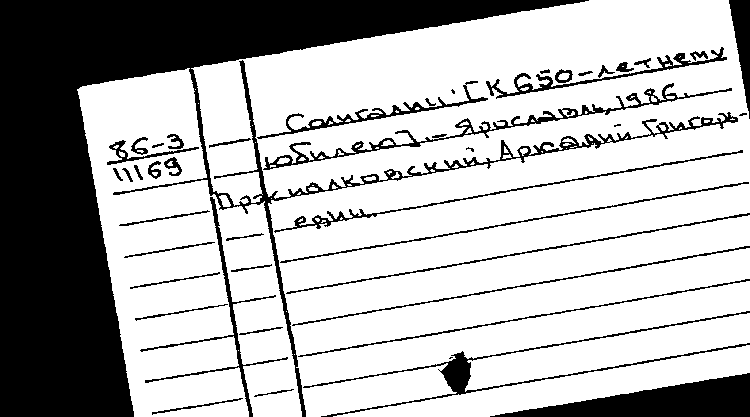 Солигалич: [К 650-летнему
86-3
11169
юбилею]. – Ярославль, 1986.
Пржиалковский, Аркадий Григорь-
евич.